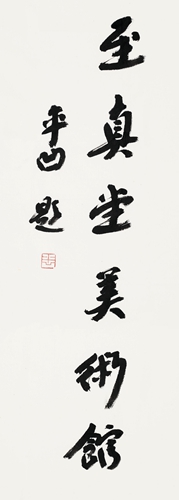 至真堂美術館
平凹題